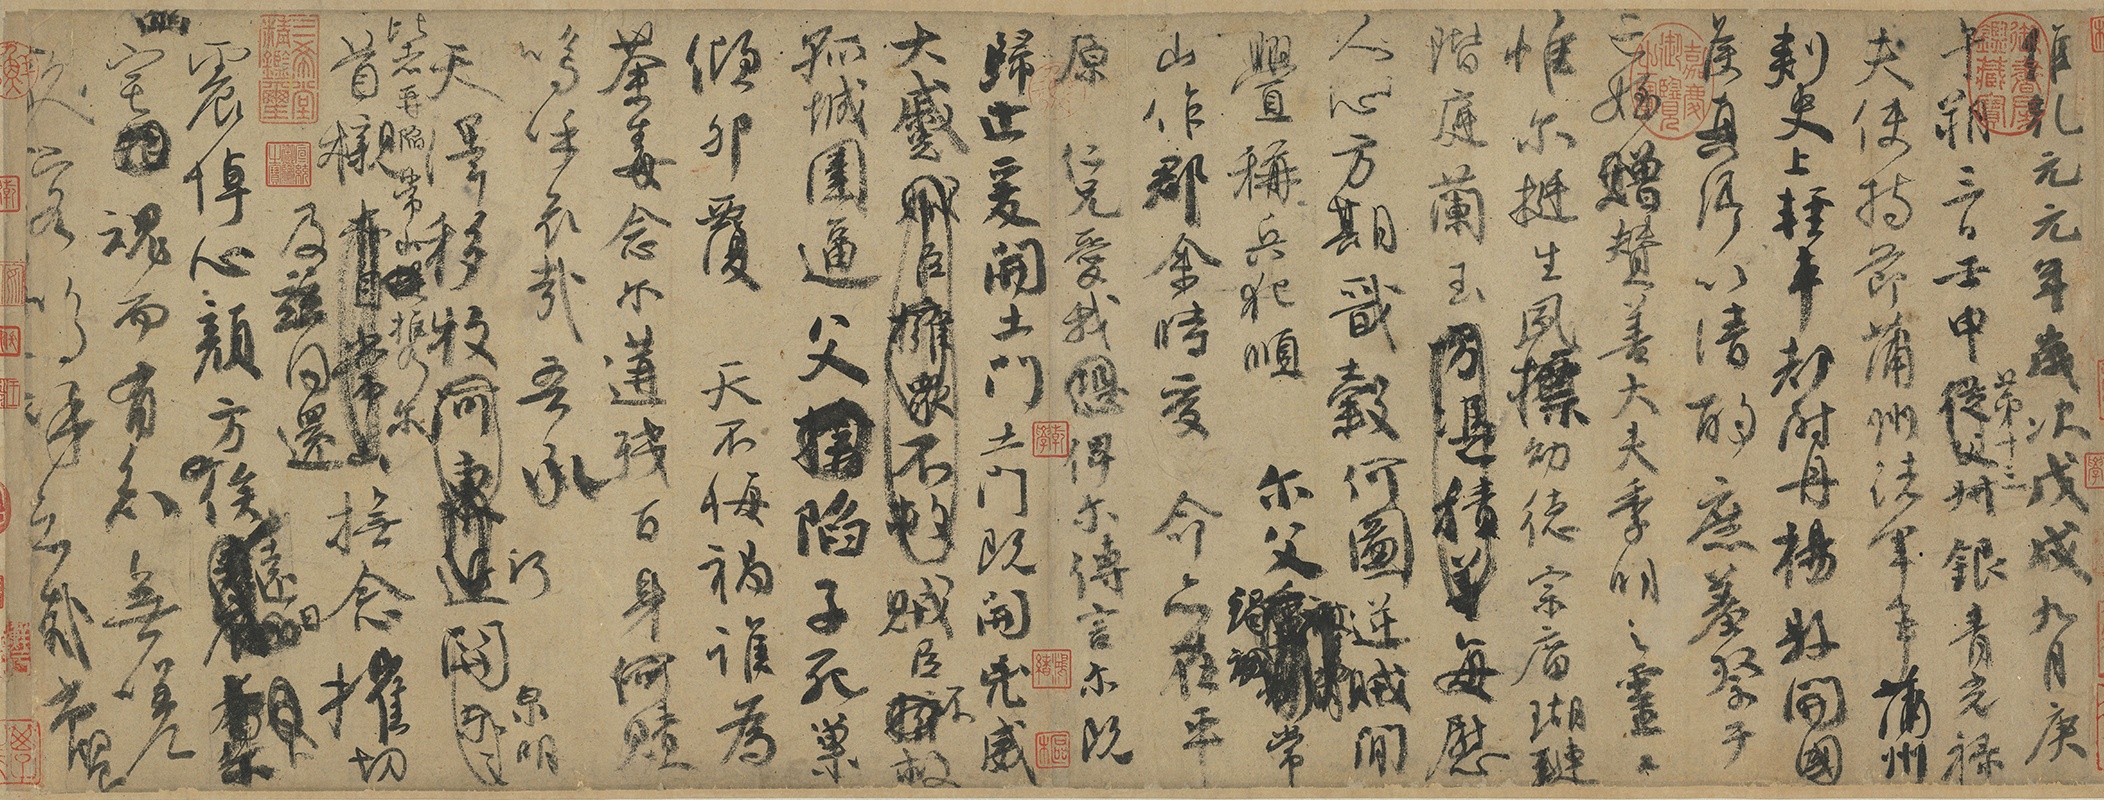 維乾元元年歲次戊戌九月庚
午朔三日壬申第十三從父叔銀青光祿
夫使持節蒲州諸軍事蒲州
刺史上輕車都尉丹楊縣開國
侯真卿以清酌庶羞祭于
亡姪贈贊善大夫季明之靈曰
惟爾挺生夙標幼德宗廟瑚璉
階庭蘭玉方憑積善每慰
人心方期戩穀何圖逆賊閒
釁稱兵犯順爾父竭誠常
山作郡余時受命亦在平
原仁兄愛我恐俾爾傳言爾既
歸止爰開土門土門既開凶威
大蹙賊臣擁眾不救賊臣不救
孤城圍逼父擒陷子死巢
傾卵覆天不悔禍誰為
荼毒念爾遘殘百身何贖
嗚呼哀哉吾承
天澤移牧河東近河關泉明
比者再陷常山攜爾
首櫬及茲同還撫念摧切
震悼心顏方俟遠日
幽宅魂而有知無嗟
久客嗚呼哀哉尚饗